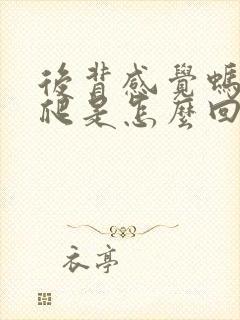 後背感覺螞
爬是怎麼回
衣亭